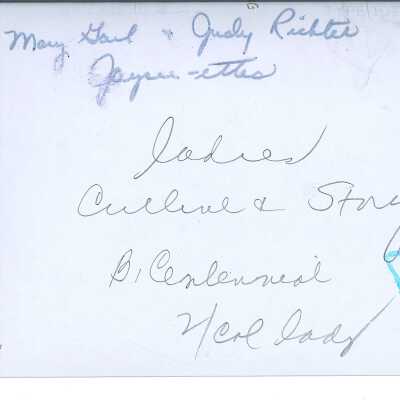 Mary Gail & Judy Richter
Jaycee-ettes
Ladies
Cutline & Story
BiCentennial
2 col lady